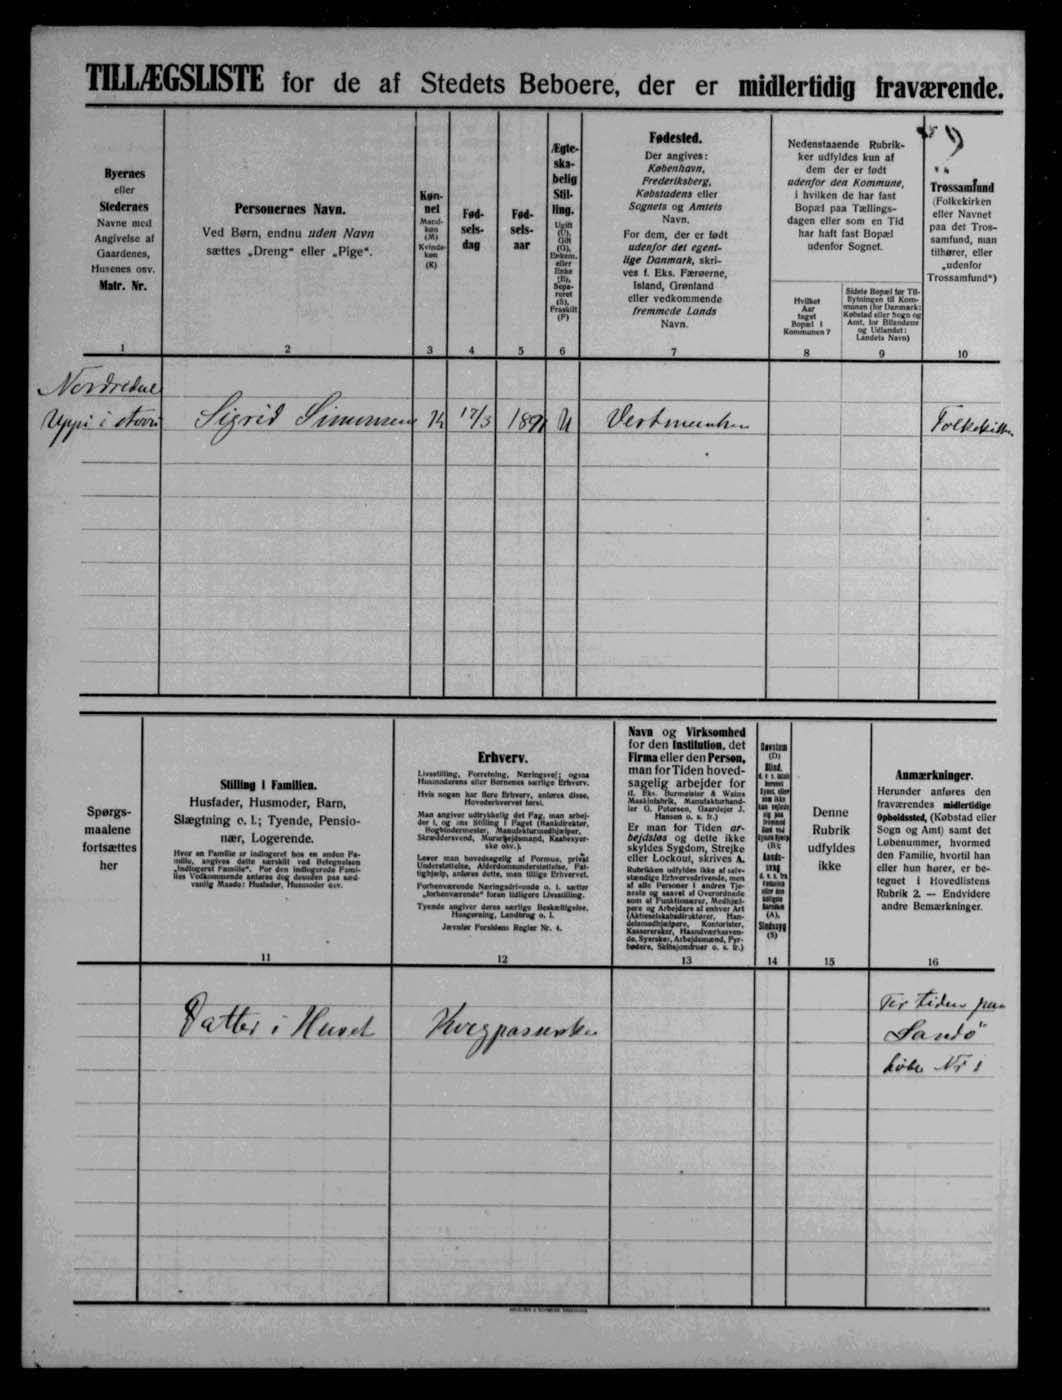 TILLÆGSLISTE for de af Stedets Beboere, der er midlertidig fraværende.
Byernes
eller
Stedernes
Navne med
Angivelse af
Gaardenes,
Husenes osv.
Matr. Nr.
1
Personernes Navn.
Ved Børn, endnu uden Navn
sættes „Dreng“ eller „Pige“.
2
Køn-
net
Mand-
køn
(M)
Kvinde-
køn
(K)
3
Fød-
sels-
dag
4
Fød-
sels-
aar
5
Ægte-
ska-
belig
Stil-
ling.
Ugift
(U),
Gift
(G),
Enkem.
eller
Enke
(E),
Sepa-
reret
(S),
Fraskilt
(F)
6
Fødested.
Der angives:
København,
Frederiksberg,
Købstadens eller
Sognets og Amtets
Navn.
For dem, der er født
udenfor det egent-
lige Danmark, skri-
ves f. Eks. Færøerne,
Island, Grønland
eller vedkommende
fremmede Lands
Navn.
7
Nedenstaaende Rubrik-
ker udfyldes kun af
dem der er født
udenfor den Kommune,
i hvilken de har fast
Bopæl paa Tællings-
dagen eller som en Tid
har haft fast Bopæl
udenfor Sognet.
Hvilket
Aar
taget
Bopæl i
Kommunen?
8
Sidste Bopæl før Til-
flytningen til Kom-
munen (for Danmark:
Købstad eller Sogn og
Amt, for Bilandene
og Udlandet:
Landets Navn)
9
Trossamfund
(Folkekirken
eller Navnet
paa det Tros-
samfund, man
tilhører, eller
„udenfor
Trossamfund“)
10
Nordredal
Uppi i stovu Sigrid Simonsen K 17/3 1891 U Vestmanhavn Folkekirken
Spørgs-
maalene
fortsættes
her
Stilling i Familien.
Husfader, Husmoder, Barn,
Slægtning o. l.; Tyende, Pensio-
nær, Logerende.
Hvor en Familie er indlogeret hos en anden Fa-
milie, angives dette særskilt ved Betegnelsen
„Indlogeret Familie“. For den indlogerede Fami-
lies Vedkommende anføres dog desuden paa sæd-
vanlig Maade: Husfader, Husmoder osv.
11
Erhverv.
Livsstilling, Forretning, Næringsvej; ogsaa
Husmoderens eller Børnenes særlige Erhverv.
Hvis nogen har flere Erhverv, anføres disse,
Hovederhvervet først.
Man angiver udtrykkelig det Fag, man arbej-
der i, og ens Stilling i Faget (Bankdirektør,
Bogbindermester, Manufakturmedhjælper,
Skræddersvend, Murarbejdsmand, Kaabesyer-
ske osv.).
Lever man hovedsagelig af Formue, privat
Understøttelse, Alderdomsunderstøttelse, Fat-
tighjælp, anføres dette, men tillige Erhvervet.
Forhenværende Næringsdrivende o. l. sætter
„forhenværende“ foran tidligere Livsstilling.
Tyende angiver deres særlige Beskæftigelse,
Husgerning, Landbrug o. l.
Jævnfør Forsidens Regler Nr. 4.
12
Navn og Virksomhed
for den Institution, det
Firma eller den Person,
man for Tiden hoved-
sagelig arbejder for
(f. Eks. Burmeister & Wains
Maskinfabrik, Manufakturhand-
ler G. Petersen, Gaardejer J.
Hansen o. s. fr.)
Er man for Tiden ar-
bejdsløs og dette ikke
skyldes Sygdom, Strejke
eller Lockout, skrives A.
Rubrikken udfyldes ikke af selv-
stændige Erhvervsdrivende, men
af alle Personer i andres Tje-
neste og saavel af Overordnede
som af Funktionærer, Medhjæl-
pere og Arbejdere af enhver Art
(Aktieselskabsdirektører, Han-
delsmedhjælpere, Kontorister,
Kassererskér, Haandværkssven-
de, Syersker, Arbejdsmænd, Fyr-
bødere, Skibsjomfruer o. s. fr.)
13
Døvstum
(D)
Blind,
(B);
Aands-
svag
(A),
Sindssyg
(S)
14
Denne
Rubrik
udfyldes
ikke
15
Anmærkninger.
Herunder anføres den
fraværendes midlertidige
Opholdssted, (Købstad eller
Sogn og Amt) samt det
Løbenummer, hvormed
den Familie, hvortil han
eller hun hører, er be-
tegnet i Hovedlistens
Rubrik 2. — Endvidere
andre Bemærkninger.
16
Datter i Huset Kvægpasserske
For tiden paa
Sandö
Løbe Nr 1